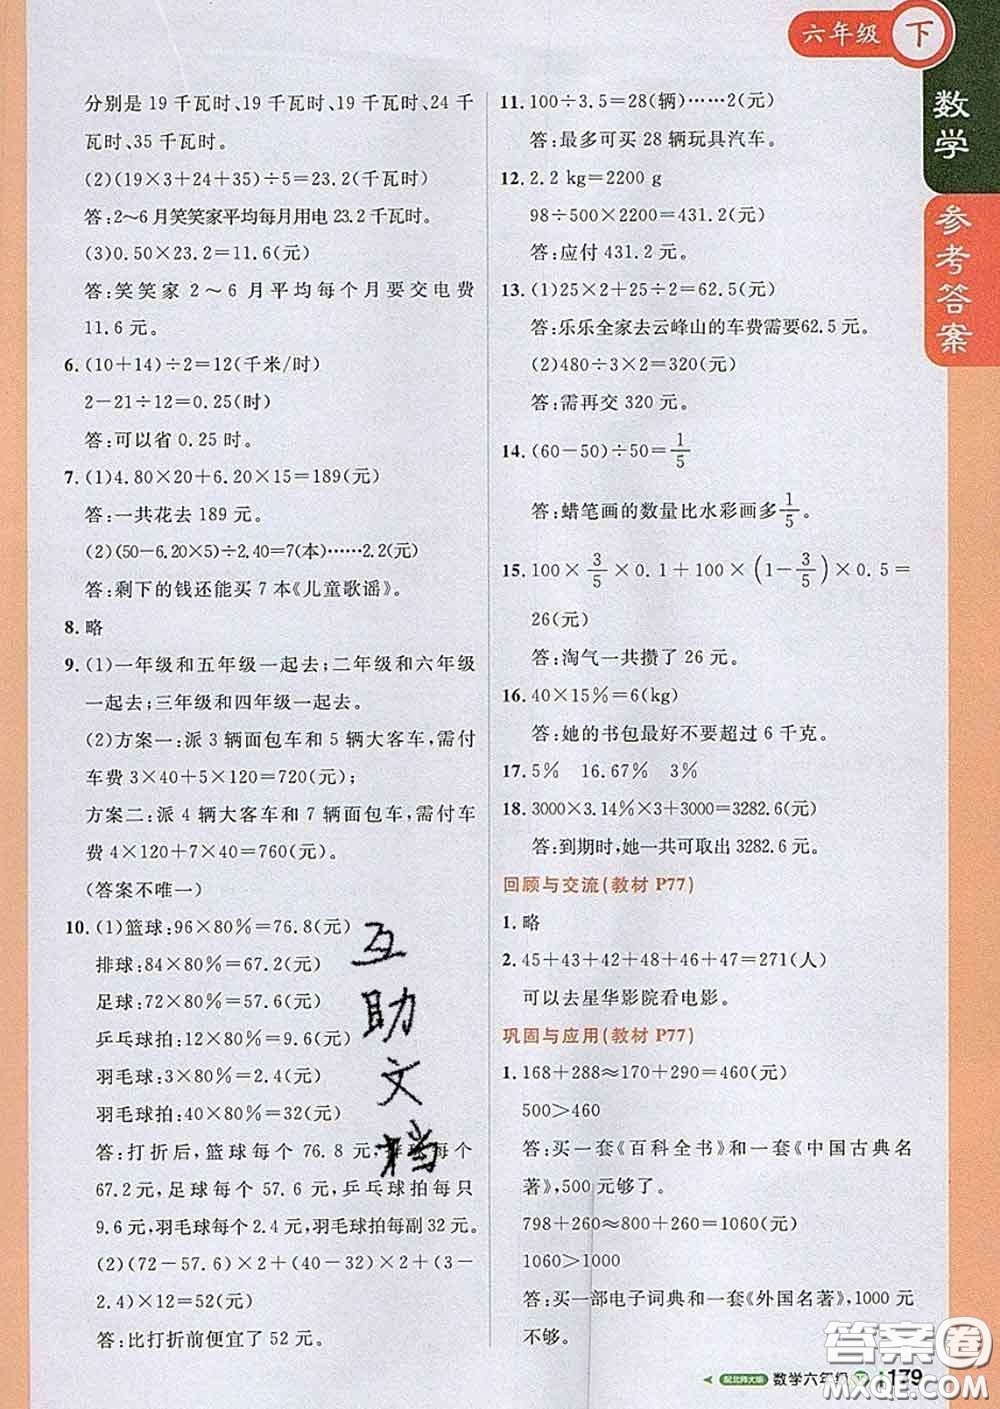 六年级 下
数学
参考答案
分别是 19 千瓦时、19 千瓦时、19 千瓦时、24 千
瓦时、35 千瓦时。
(2)(19×3+24+35)÷5=23.2(千瓦时)
答:2~6月笑笑家平均每月用电 23.2 千瓦时。
(3)0.50×23.2=11.6(元)
答:笑笑家 2~6 月平均每个月要交电费
11.6 元。
6. (10+14)÷2=12(千米/时)
2-21÷12=0.25(时)
答:可以省 0.25 时。
7. (1)4.80×20+6.20×15=189(元)
答:一共花去 189 元。
(2)(50-6.20×5)÷2.40=7(本)……2.2(元)
答:剩下的钱还能买 7 本《儿童歌谣》。
8. 略
9. (1)一年级和五年级一起去;二年级和六年级
一起去;三年级和四年级一起去。
(2)方案一:派 3 辆面包车和 5 辆大客车,需付
车费 3×40+5×120=720(元);
方案二:派 4 辆大客车和 7 辆面包车,需付车
费 4×120+7×40=760(元)。
(答案不唯一)
10. (1)篮球:96×80%=76.8(元)
排球:84×80%=67.2(元)
足球:72×80%=57.6(元)
乒乓球拍:12×80%=9.6(元)
羽毛球:3×80%=2.4(元)
羽毛球拍:40×80%=32(元)
答:打折后,篮球每个 76.8 元,排球每个
67.2 元,足球每个 57.6 元,乒乓球拍每只
9.6 元,羽毛球每个 2.4 元,羽毛球拍每副 32 元。
(2)(72-57.6)×2+(40-32)×2+(3-
2.4)×12=52(元)
答:比打折前便宜了 52 元。
互
助
文
档
11. 100÷3.5=28(辆)……2(元)
答:最多可买 28 辆玩具汽车。
12. 2.2 kg=2200 g
98÷500×2200=431.2(元)
答:应付 431.2 元。
13. (1)25×2+25÷2=62.5(元)
答:乐乐全家去云峰山的车费需要62.5 元。
(2)480÷3×2=320(元)
答:需再交 320 元。
14. (60-50)÷50=1/5
答:蜡笔画的数量比水彩画多1/5。
15. 100×3/5×0.1+100×(1-3/5)×0.5=
26(元)
答:淘气一共攒了 26 元。
16. 40×15%=6(kg)
答:她的书包最好不要超过 6 千克。
17. 5% 16.67% 3%
18. 3000×3.14%×3+3000=3282.6(元)
答:到期时,她一共可取出 3282.6 元。
回顾与交流(教材 P77)
1. 略
2. 45+43+42+48+46+47=271(人)
可以去星华影院看电影。
巩固与应用(教材 P77)
1. 168+288≈170+290=460(元)
500>460
答:买一套《百科全书》和一套《中国古典名
著》,500 元够了。
798+260≈800+260=1060(元)
1060>1000
答:买一部电子词典和一套《外国名著》,1000 元
不够。
配北师大版 数学六年级 下 179
答案圈
MXQE.COM